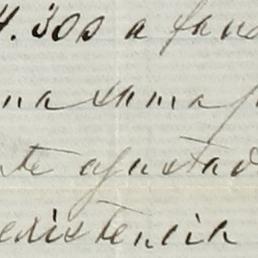 4.300 a fav
na suma p
te ajustad
existencia